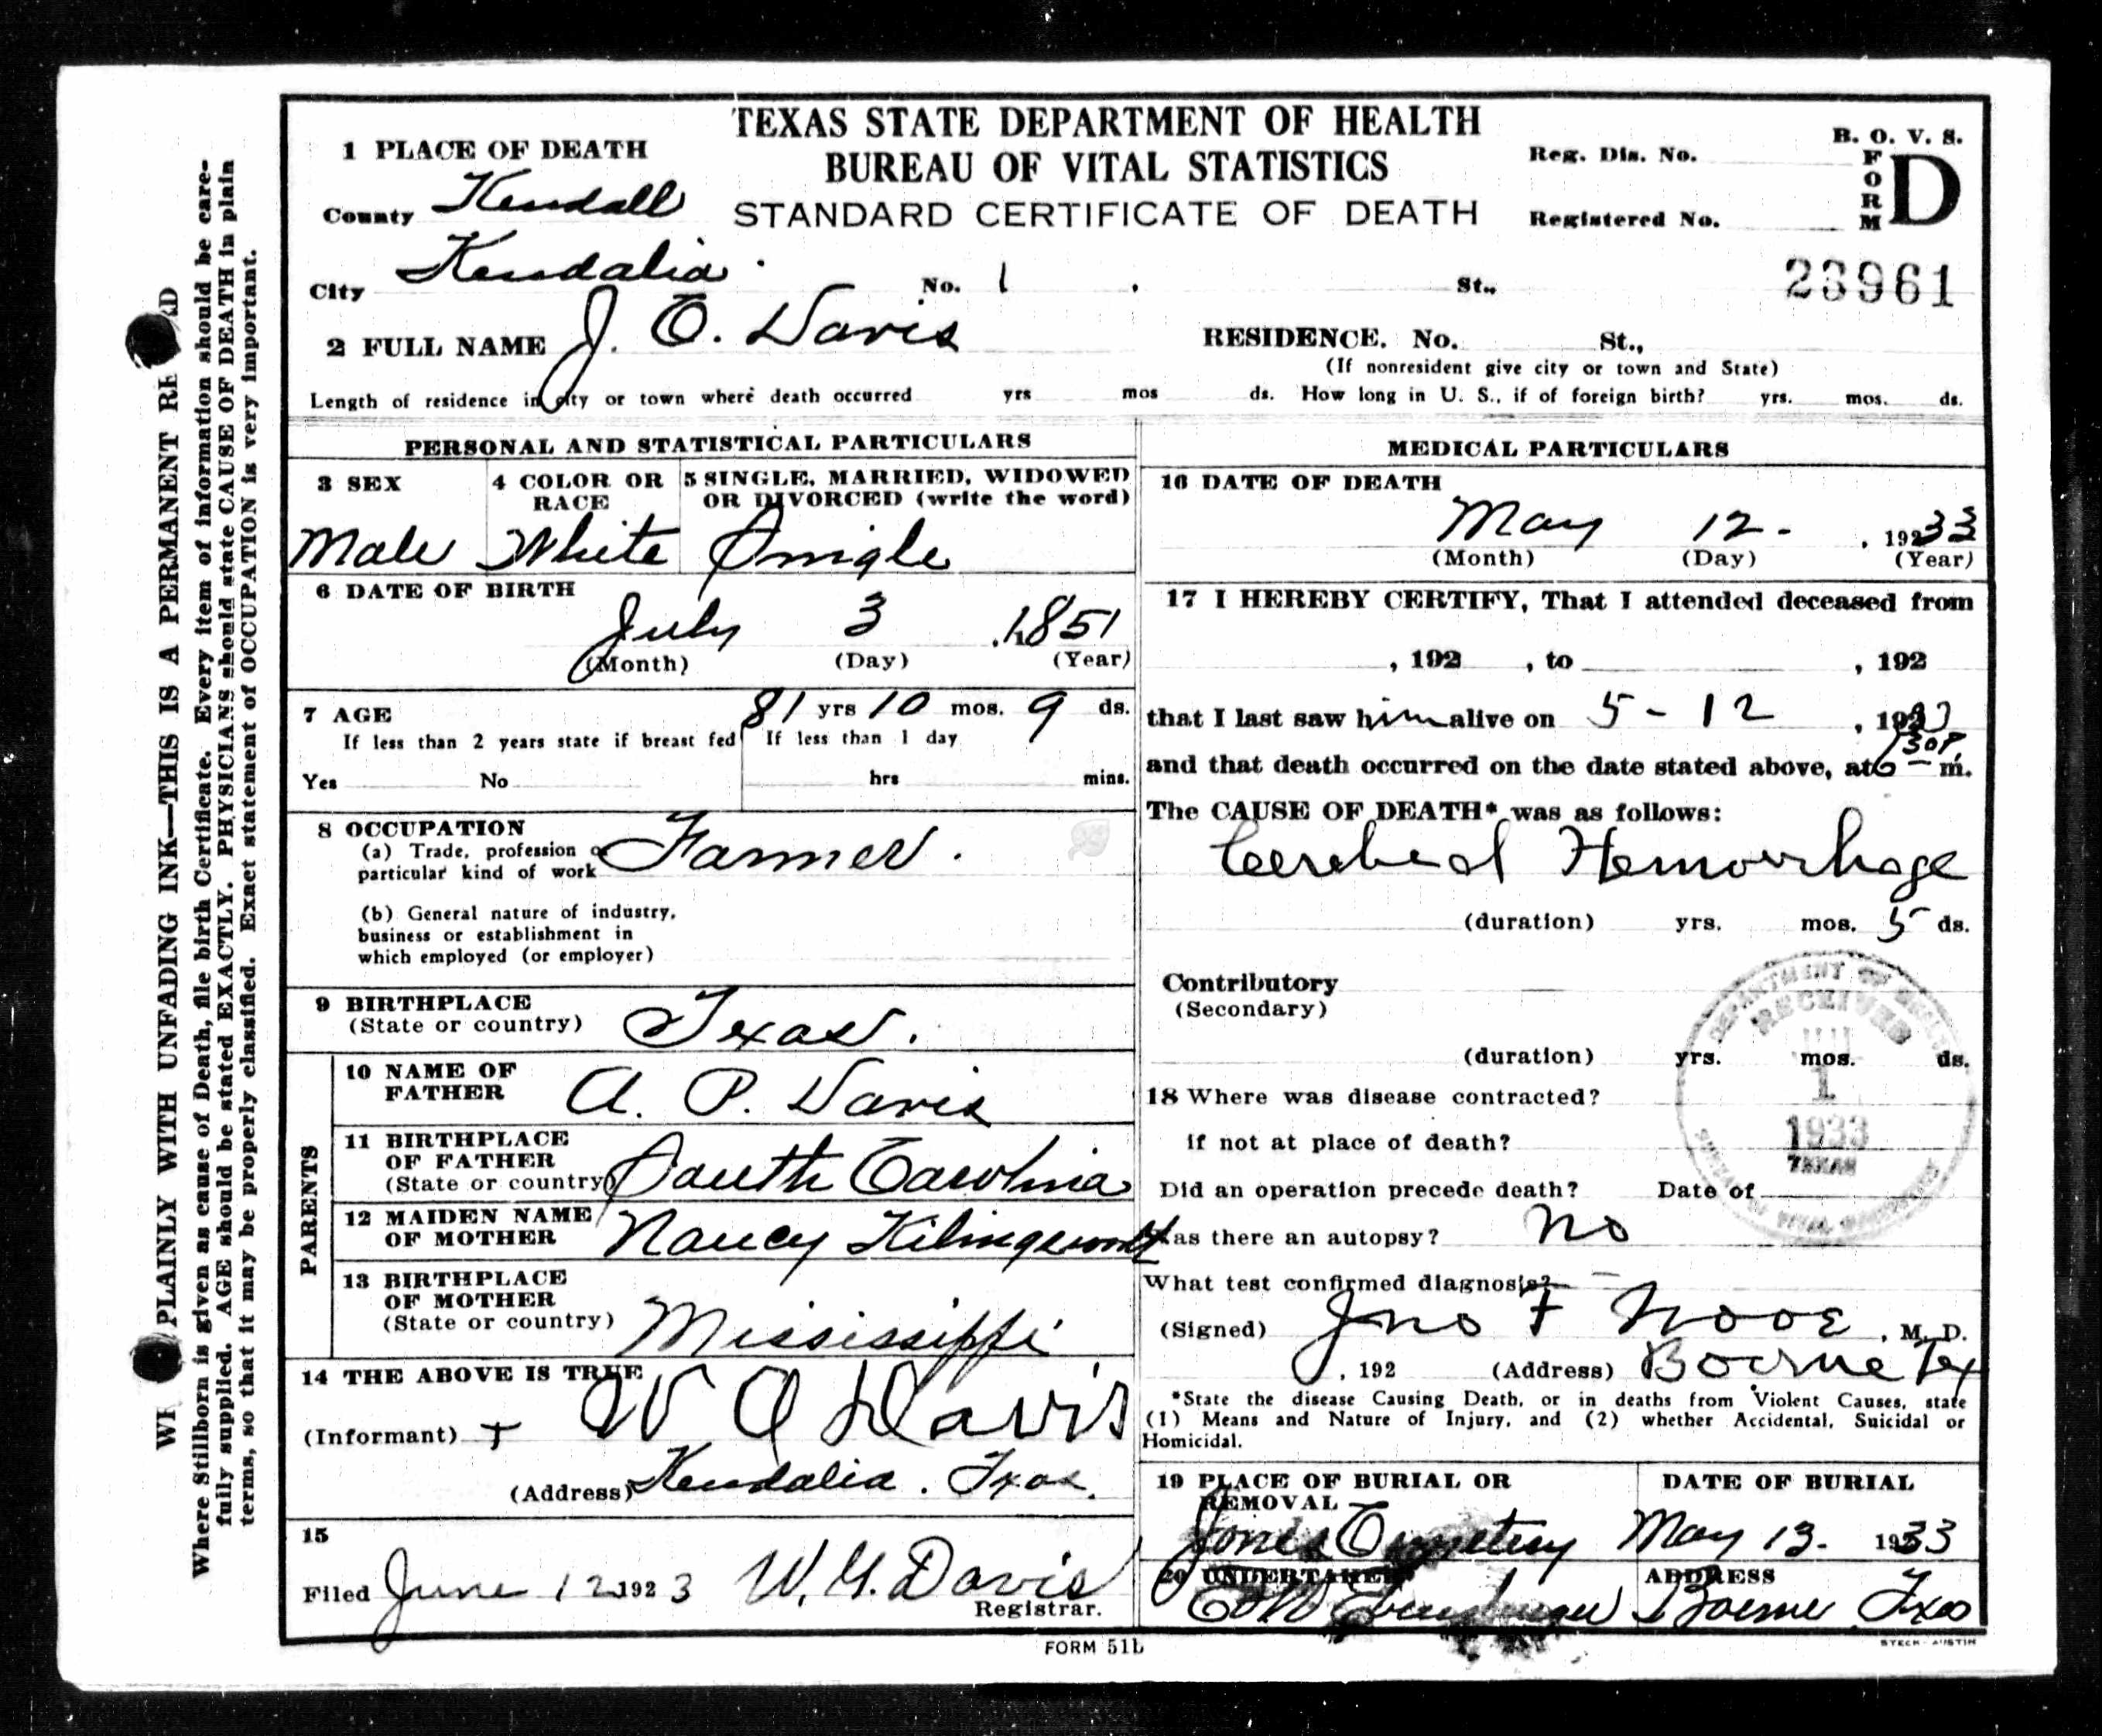 TEXAS STATE DEPARTMENT OF HEALTH
BUREAU OF VITAL STATISTICS
STANDARD CERTIFICATE OF DEATH
B. O. V. S.
FORM D
Reg. Dis. No.
Registered No.
23961
1 PLACE OF DEATH
County Kendall
City Kendalia. No. 1 St.,
2 FULL NAME J. O. Davis
RESIDENCE. No. St.,
(If nonresident give city or town and State)
Length of residence in city or town where death occurred yrs mos ds. How long in U. S., if of foreign birth? yrs. mos. ds.
PERSONAL AND STATISTICAL PARTICULARS
3 SEX
Male
4 COLOR OR RACE
White
5 SINGLE, MARRIED, WIDOWED
OR DIVORCED (write the word)
Single
6 DATE OF BIRTH
July 3 , 1851
(Month) (Day) (Year)
7 AGE 81 yrs 10 mos. 9 ds.
If less than 2 years state if breast fed If less than 1 day
Yes No hrs mins.
8 OCCUPATION
(a) Trade, profession or
particular kind of work Farmer.
(b) General nature of industry,
business or establishment in
which employed (or employer)
9 BIRTHPLACE
(State or country) Texas.
PARENTS
10 NAME OF
FATHER A. P. Davis
11 BIRTHPLACE
OF FATHER
(State or country) South Carolina
12 MAIDEN NAME
OF MOTHER Nancy Kilingsworth
13 BIRTHPLACE
OF MOTHER
(State or country) Mississippi
14 THE ABOVE IS TRUE
(Informant) + W O Davis
(Address) Kendalia. Texas.
15
Filed June 12 1923 W. G. Davis
Registrar.
MEDICAL PARTICULARS
16 DATE OF DEATH
May 12 - , 1933
(Month) (Day) (Year)
17 I HEREBY CERTIFY, That I attended deceased from
, 192 , to , 192
that I last saw him alive on 5 - 12 , 1933
and that death occurred on the date stated above, at 6 30 P. m.
The CAUSE OF DEATH* was as follows:
Cerebral Hemorrhage
(duration) yrs. mos. 5 ds.
Contributory
(Secondary)
(duration) yrs. mos. ds.
18 Where was disease contracted?
if not at place of death?
Did an operation precede death? Date of
Was there an autopsy? No
What test confirmed diagnosis? —
(Signed) Jno F Nooe, M. D.
, 192 (Address) Boerne Tex
*State the disease Causing Death, or in deaths from Violent Causes, state
(1) Means and Nature of Injury, and (2) whether Accidental, Suicidal or
Homicidal.
19 PLACE OF BURIAL OR
REMOVAL
Jones Cemetery
DATE OF BURIAL
May 13. 1933
20 UNDERTAKER
ADDRESS
Boerne Texas
RECEIVED
1
1933
TEXAS
FORM 51L
STECK - AUSTIN
PLAINLY WITH UNFADING INK—THIS IS A PERMANENT
Where Stillborn is given as cause of Death, file birth Certificate. Every item of information should be care-
fully supplied. AGE should be stated EXACTLY. PHYSICIANS should state CAUSE OF DEATH in plain
terms, so that it may be properly classified. Exact statement of OCCUPATION is very important.